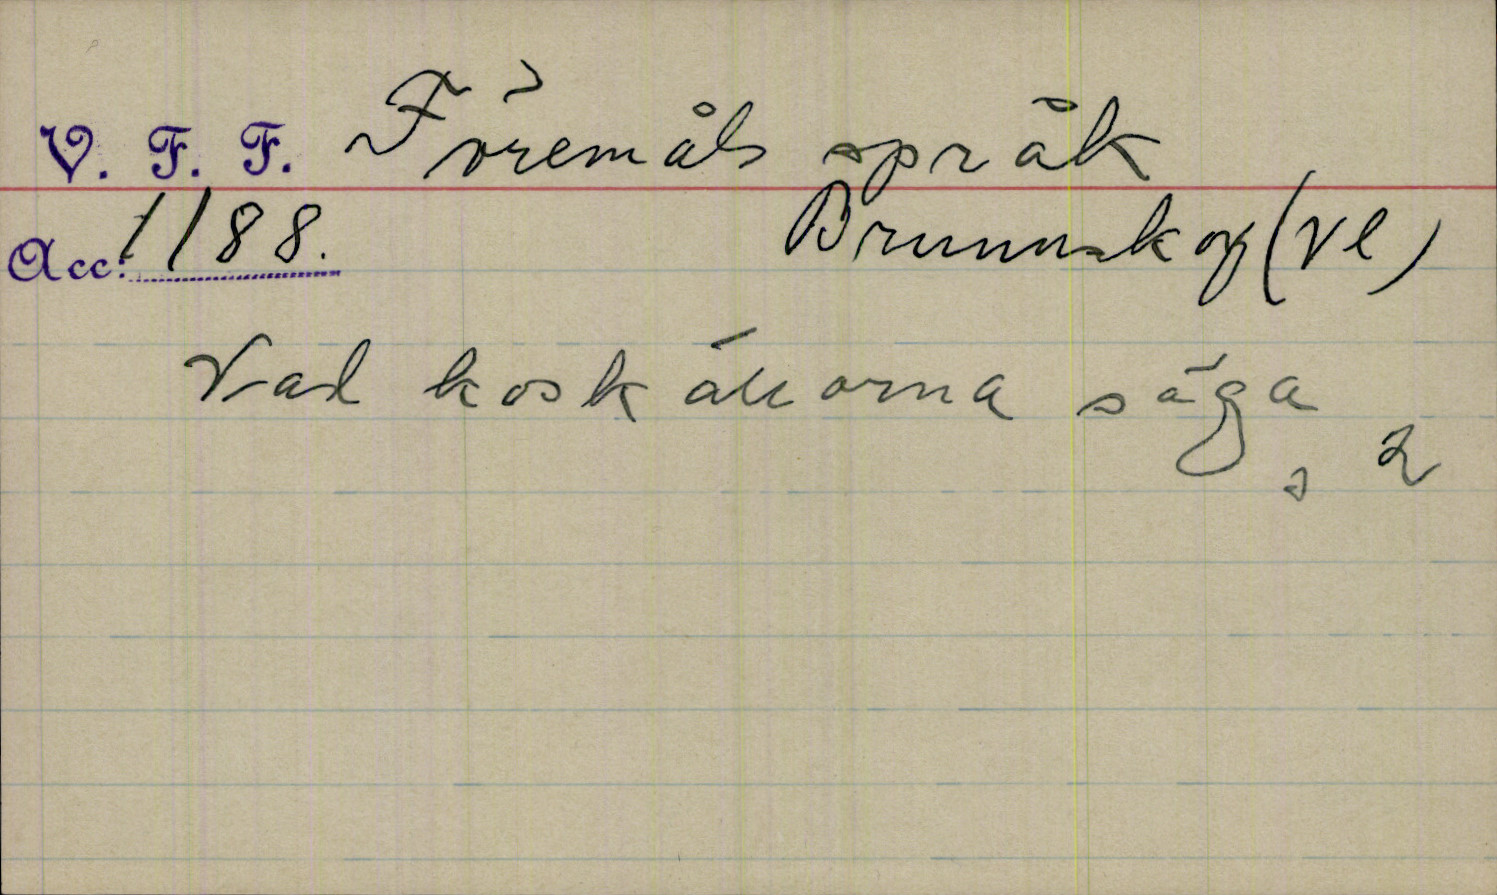 V. F. F. Föremåls språk
Acc: 1188. Brunnskog (Vl)
Vad koskällorna säga
s 2